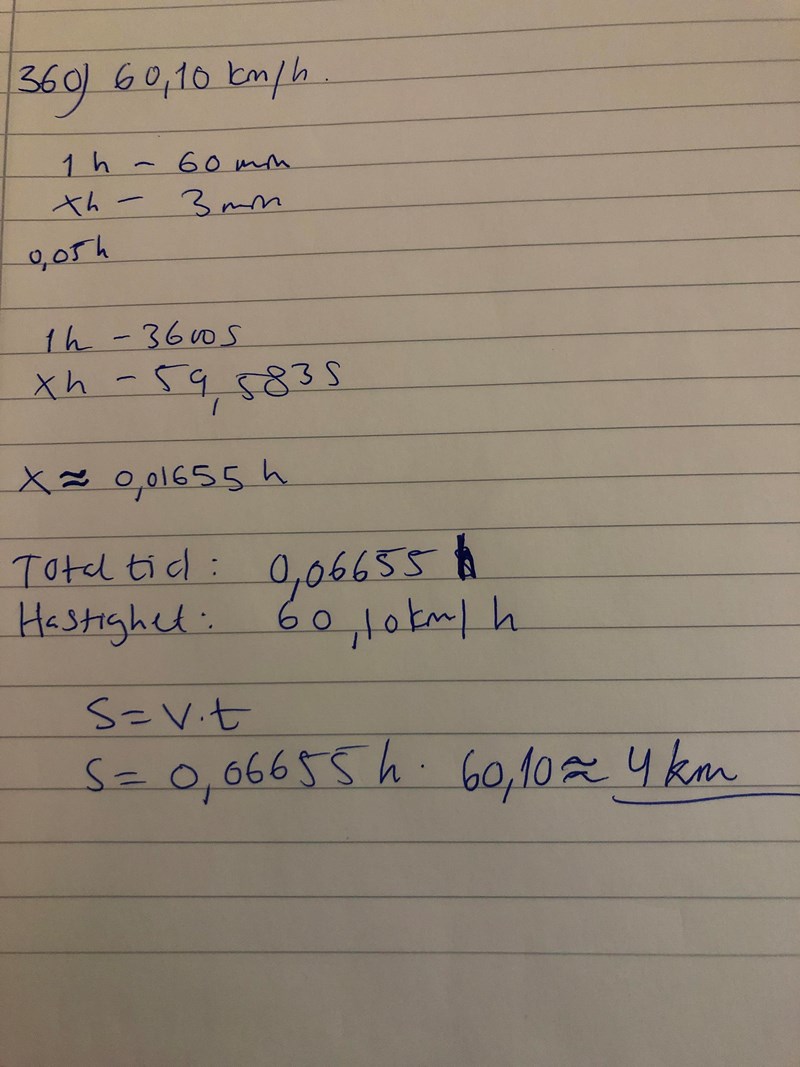 360) 60,10 km/h.
1 h - 60 min
xh - 3 min
0,05 h
1h - 3600s
xh - 59,583s
x ≈ 0,01655 h
Total tid: 0,06655 h
Hastighet: 60,10 km/h
S = v·t
S = 0,06655 h · 60,10 ≈ 4 km